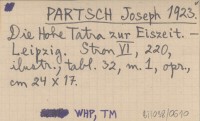 PARTSCH Joseph 1923.
Die Hohe Tatra zur Eiszeit. —
Leipzig. Stron VI, 220,
ilustr., tabl. 32, m. 1, opr.,
cm 24 x 17.
WHP, TM